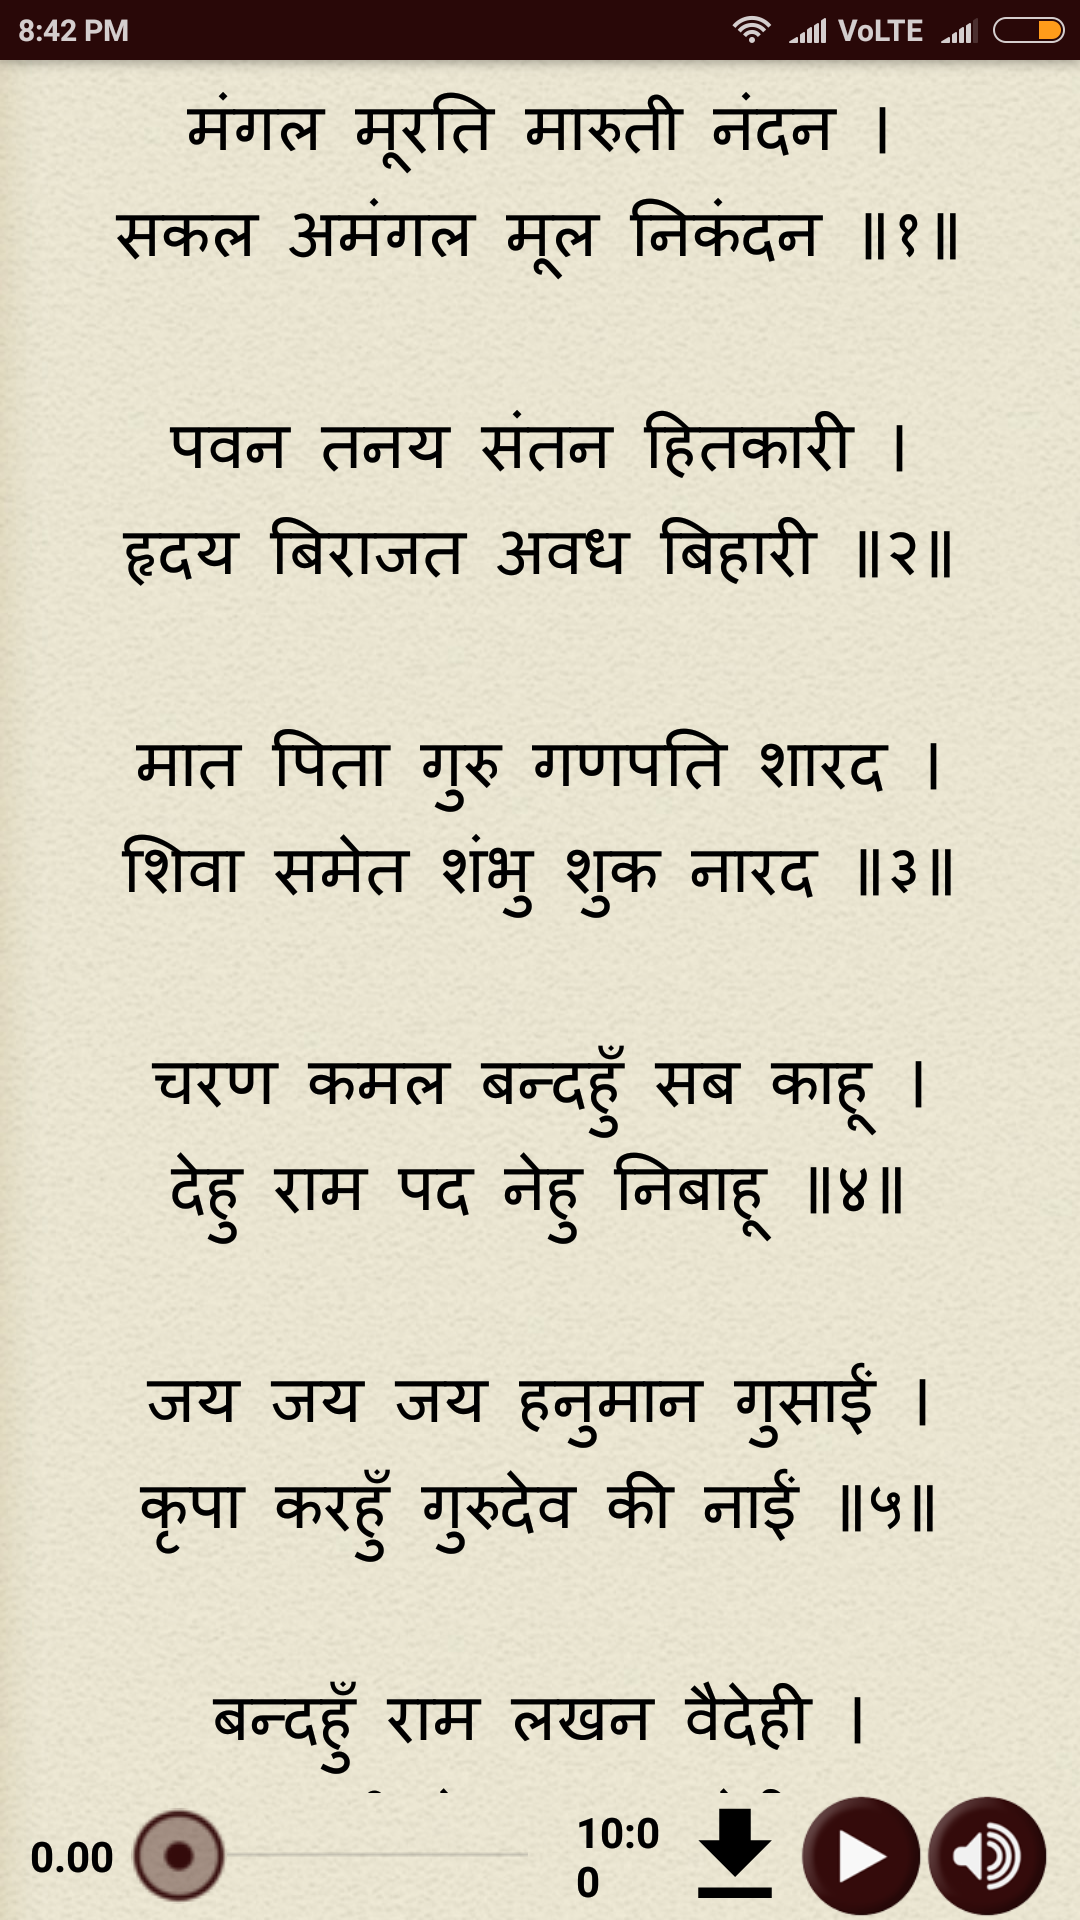 8:42 PM VoLTE
मंगल मूरति मारुती नंदन ।
सकल अमंगल मूल निकंदन ॥१॥
पवन तनय संतन हितकारी ।
हृदय बिराजत अवध बिहारी ॥२॥
मात पिता गुरु गणपति शारद ।
शिवा समेत शंभु शुक नारद ॥३॥
चरण कमल बन्दहुँ सब काहू ।
देहु राम पद नेहु निबाहू ॥४॥
जय जय जय हनुमान गुसाईं ।
कृपा करहुँ गुरुदेव की नाईं ॥५॥
बन्दहुँ राम लखन वैदेही ।
0.00 10:00